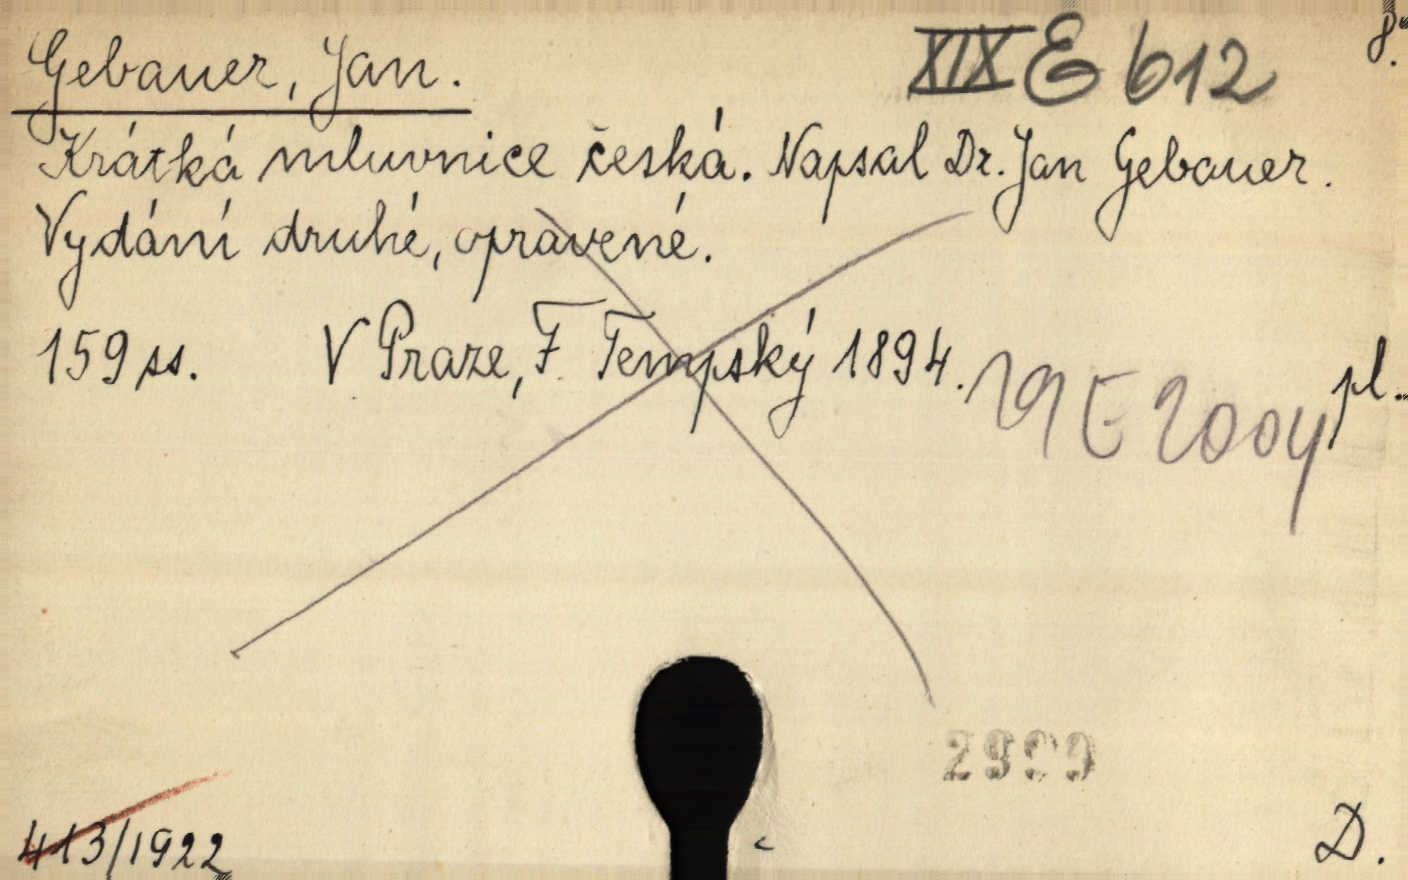 Gebauer, Jan. XIX E 612 8°.
Krátká mluvnice česká. Napsal Dr. Jan Gebauer.
Vydání druhé, opravené.
159 ss. V Praze, F. Tempský 1894. pl..
19 E 2004
2999
413/1922 D.